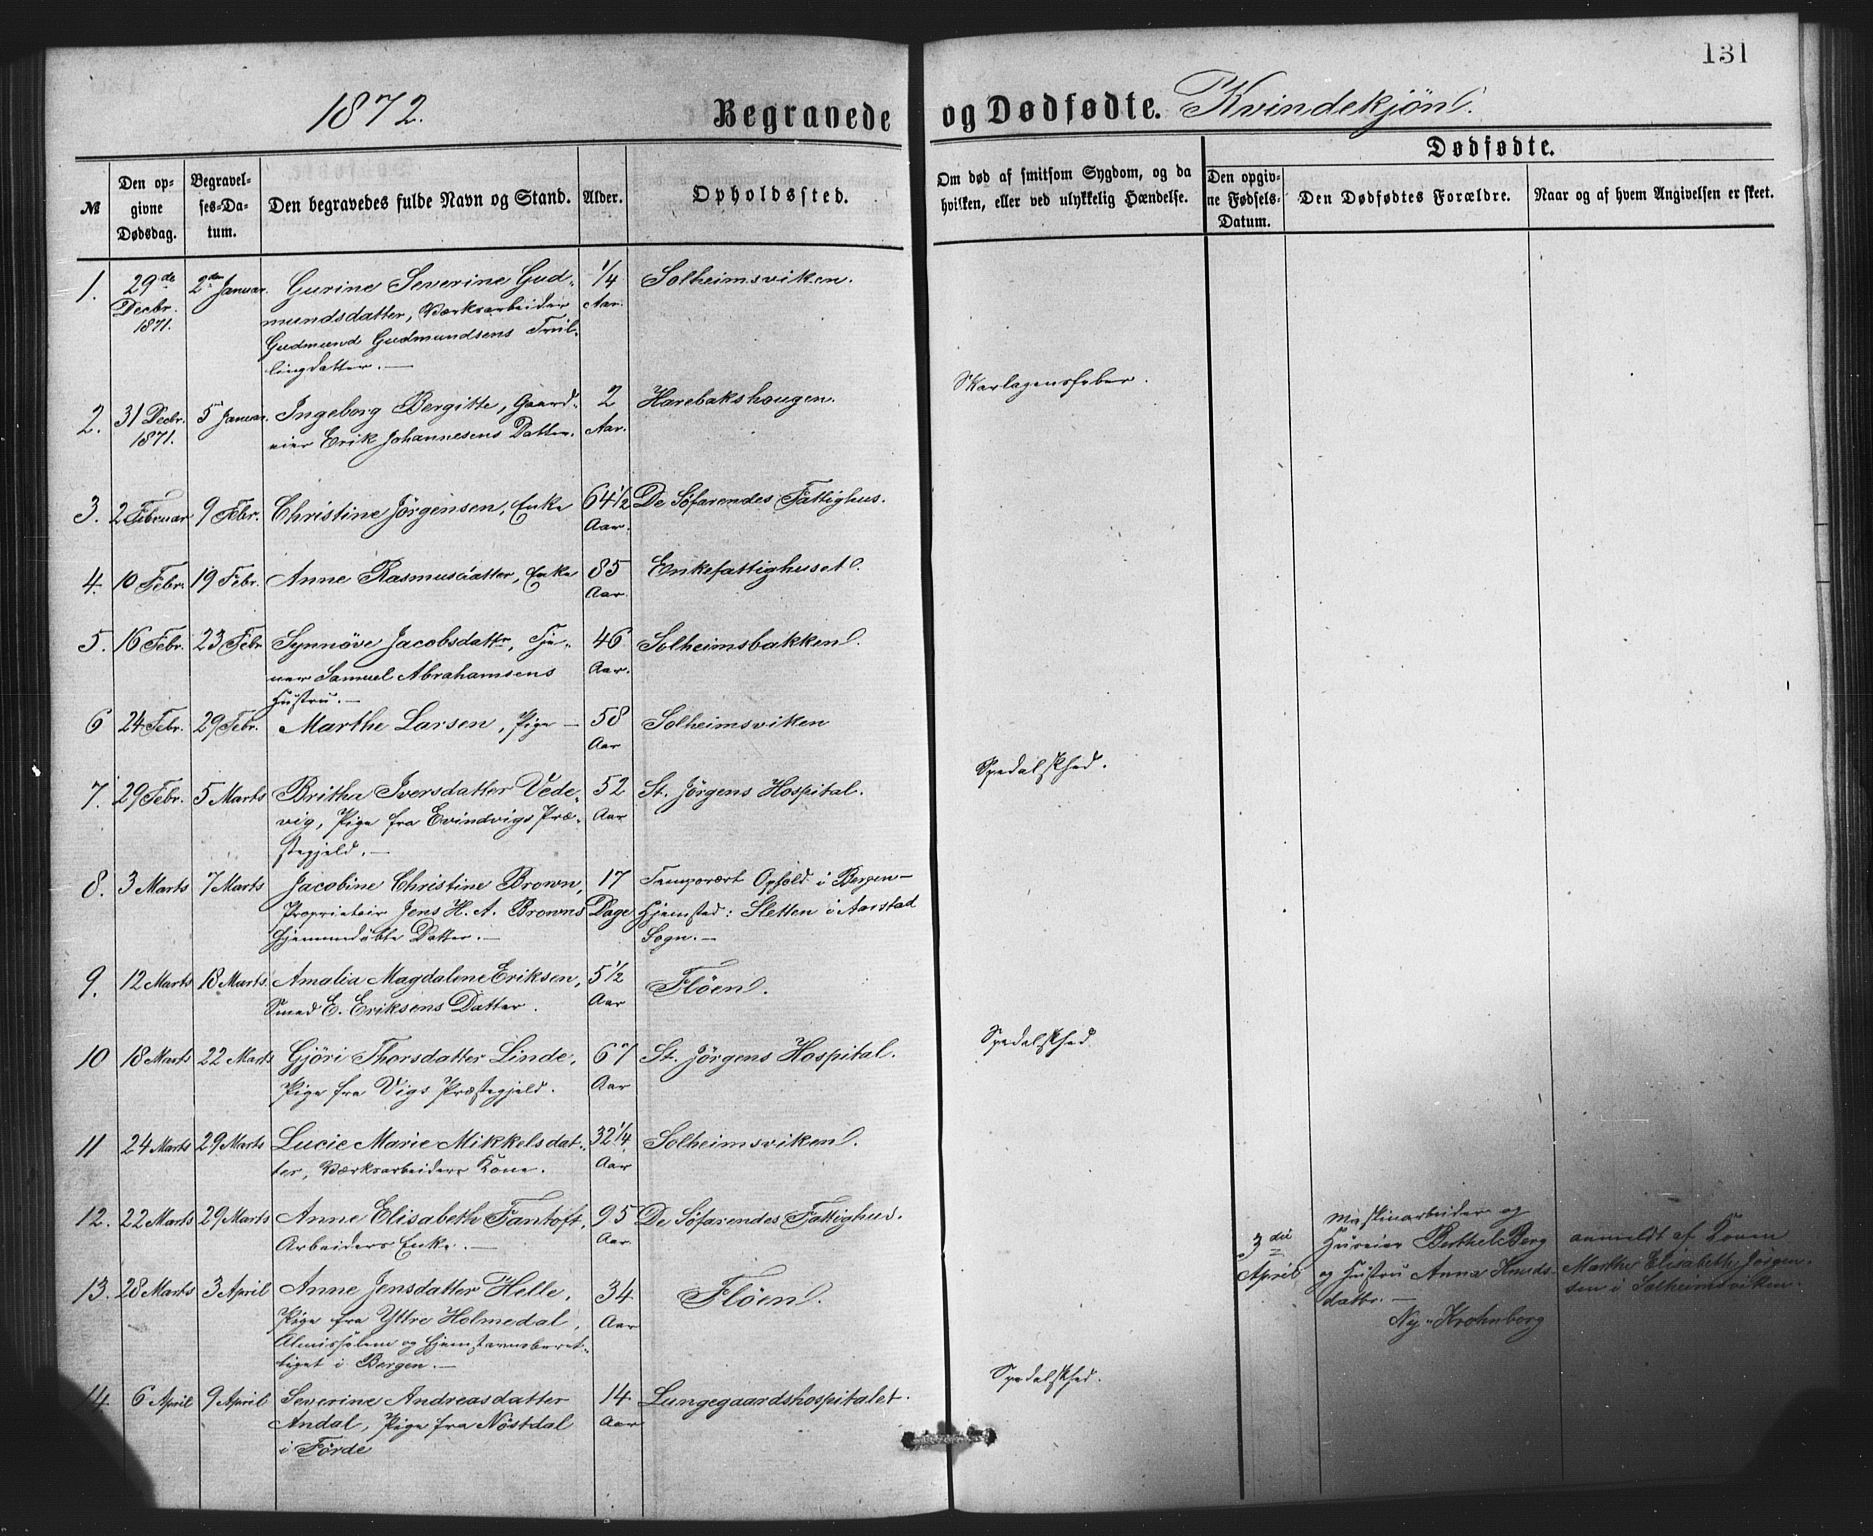 131
1872.
Begravede og Dødfødte. Kvindekjøn.
№
Den op-
givne
Dødsdag.
Begravel-
ses-Da-
tum.
Den begravedes fulde Navn og Stand.
Alder.
Opholdssted.
Om død af smitsom Sygdom, og da
hvilken, eller ved ulykkelig Hændelse.
Dødfødte.
Den opgiv-
ne Fødsels-
Datum.
Den Dødfødtes Forældre.
Naar og af hvem Angivelsen er skeet.
1. 29de Decbr. 1871. 2den Januar. Gurine Severine Gud- 1/4 Aar. Solheimsviken.
mundsdatter, Værksarbeider
Gudmund Gudmundsens Tvil-
lingdatter. —
2. 31 Decbr. 1871. 5 Januar. Ingeborg Bergitte, Gaard- 2 Aar. Harebakshaugen. Skarlagensfeber.
eier Erik Johannesens Datter.
3. 2 Februar 9 Febr. Christine Jörgensen, Enke 64 1/2 Aar. De Söfarendes Fattighus.
4. 10 Febr. 19 Febr. Anne Rasmusdatter, Enke 85 Aar. Enkefattighuset.
5. 16 Febr. 23 Febr Synnöve Jacobsdattr, Tje- 46 Aar. Solheimsbakken.
ner Samuel Abrahamsens
Hustru. —
6 24 Febr. 29 Febr. Marthe Larsen, Pige — 58 Aar Solheimsviken
7. 29 Febr. 5 Marts Britha Iversdatter Vede- 52 Aar St. Jörgens Hospital. Spedalskhed.
vig, Pige fra Evindvigs Præ-
stegjeld. —
8. 3 Marts 7 Marts Jacobine Christine Brown, 17 Dage Temporært Ophold i Bergen —
Proprietair Jens H. A. Browns Hjemsted: Sletten i Aarstad
Hjemmedøbte Datter. — Sogn. —
9. 12 Marts 18 Marts. Amalia Magdalene Eriksen, 5 1/2 Aar Flöen.
Smed E. Eriksens Datter.
10 18 Marts 22 Marts Gjöri Thorsdatter Linde, 67 Aar St. Jörgens Hospital. Spedalskhed
Pige fra Vigs Præstegjeld.
11 24 Marts 29 Marts Lucie Marie Mikkelsdat- 32 1/4 Aar Solheimsviken.
ter, Værksarbeiders Kone.
12. 22 Marts 29 Marts Anne Elisabeth Fantoft, 95 Aar. De Söfarendes Fattighus.
Arbeiders Enke. —
3die April
Maskinarbeider og
Huseier Berthel Berg
og Hustru Anna Knuds-
datter. —
Ny-Krohnborg
anmeldt af Konen
Marthe Elisabeth Jörgen-
sen i Solheimsviken.
13. 28 Marts 3 April Anne Jensdatter Helle, 34 Aar Flöen.
Pige fra Yttre Holmedal,
Almisselem og Hjemstavnsberet-
tiget i Bergen. —
14. 6 April 9 April Severine Andreasdatter 14 Aar Lungegaardshospitalet. Spedalskhed.
Andal, Pige fra Nöstdal
i Förde